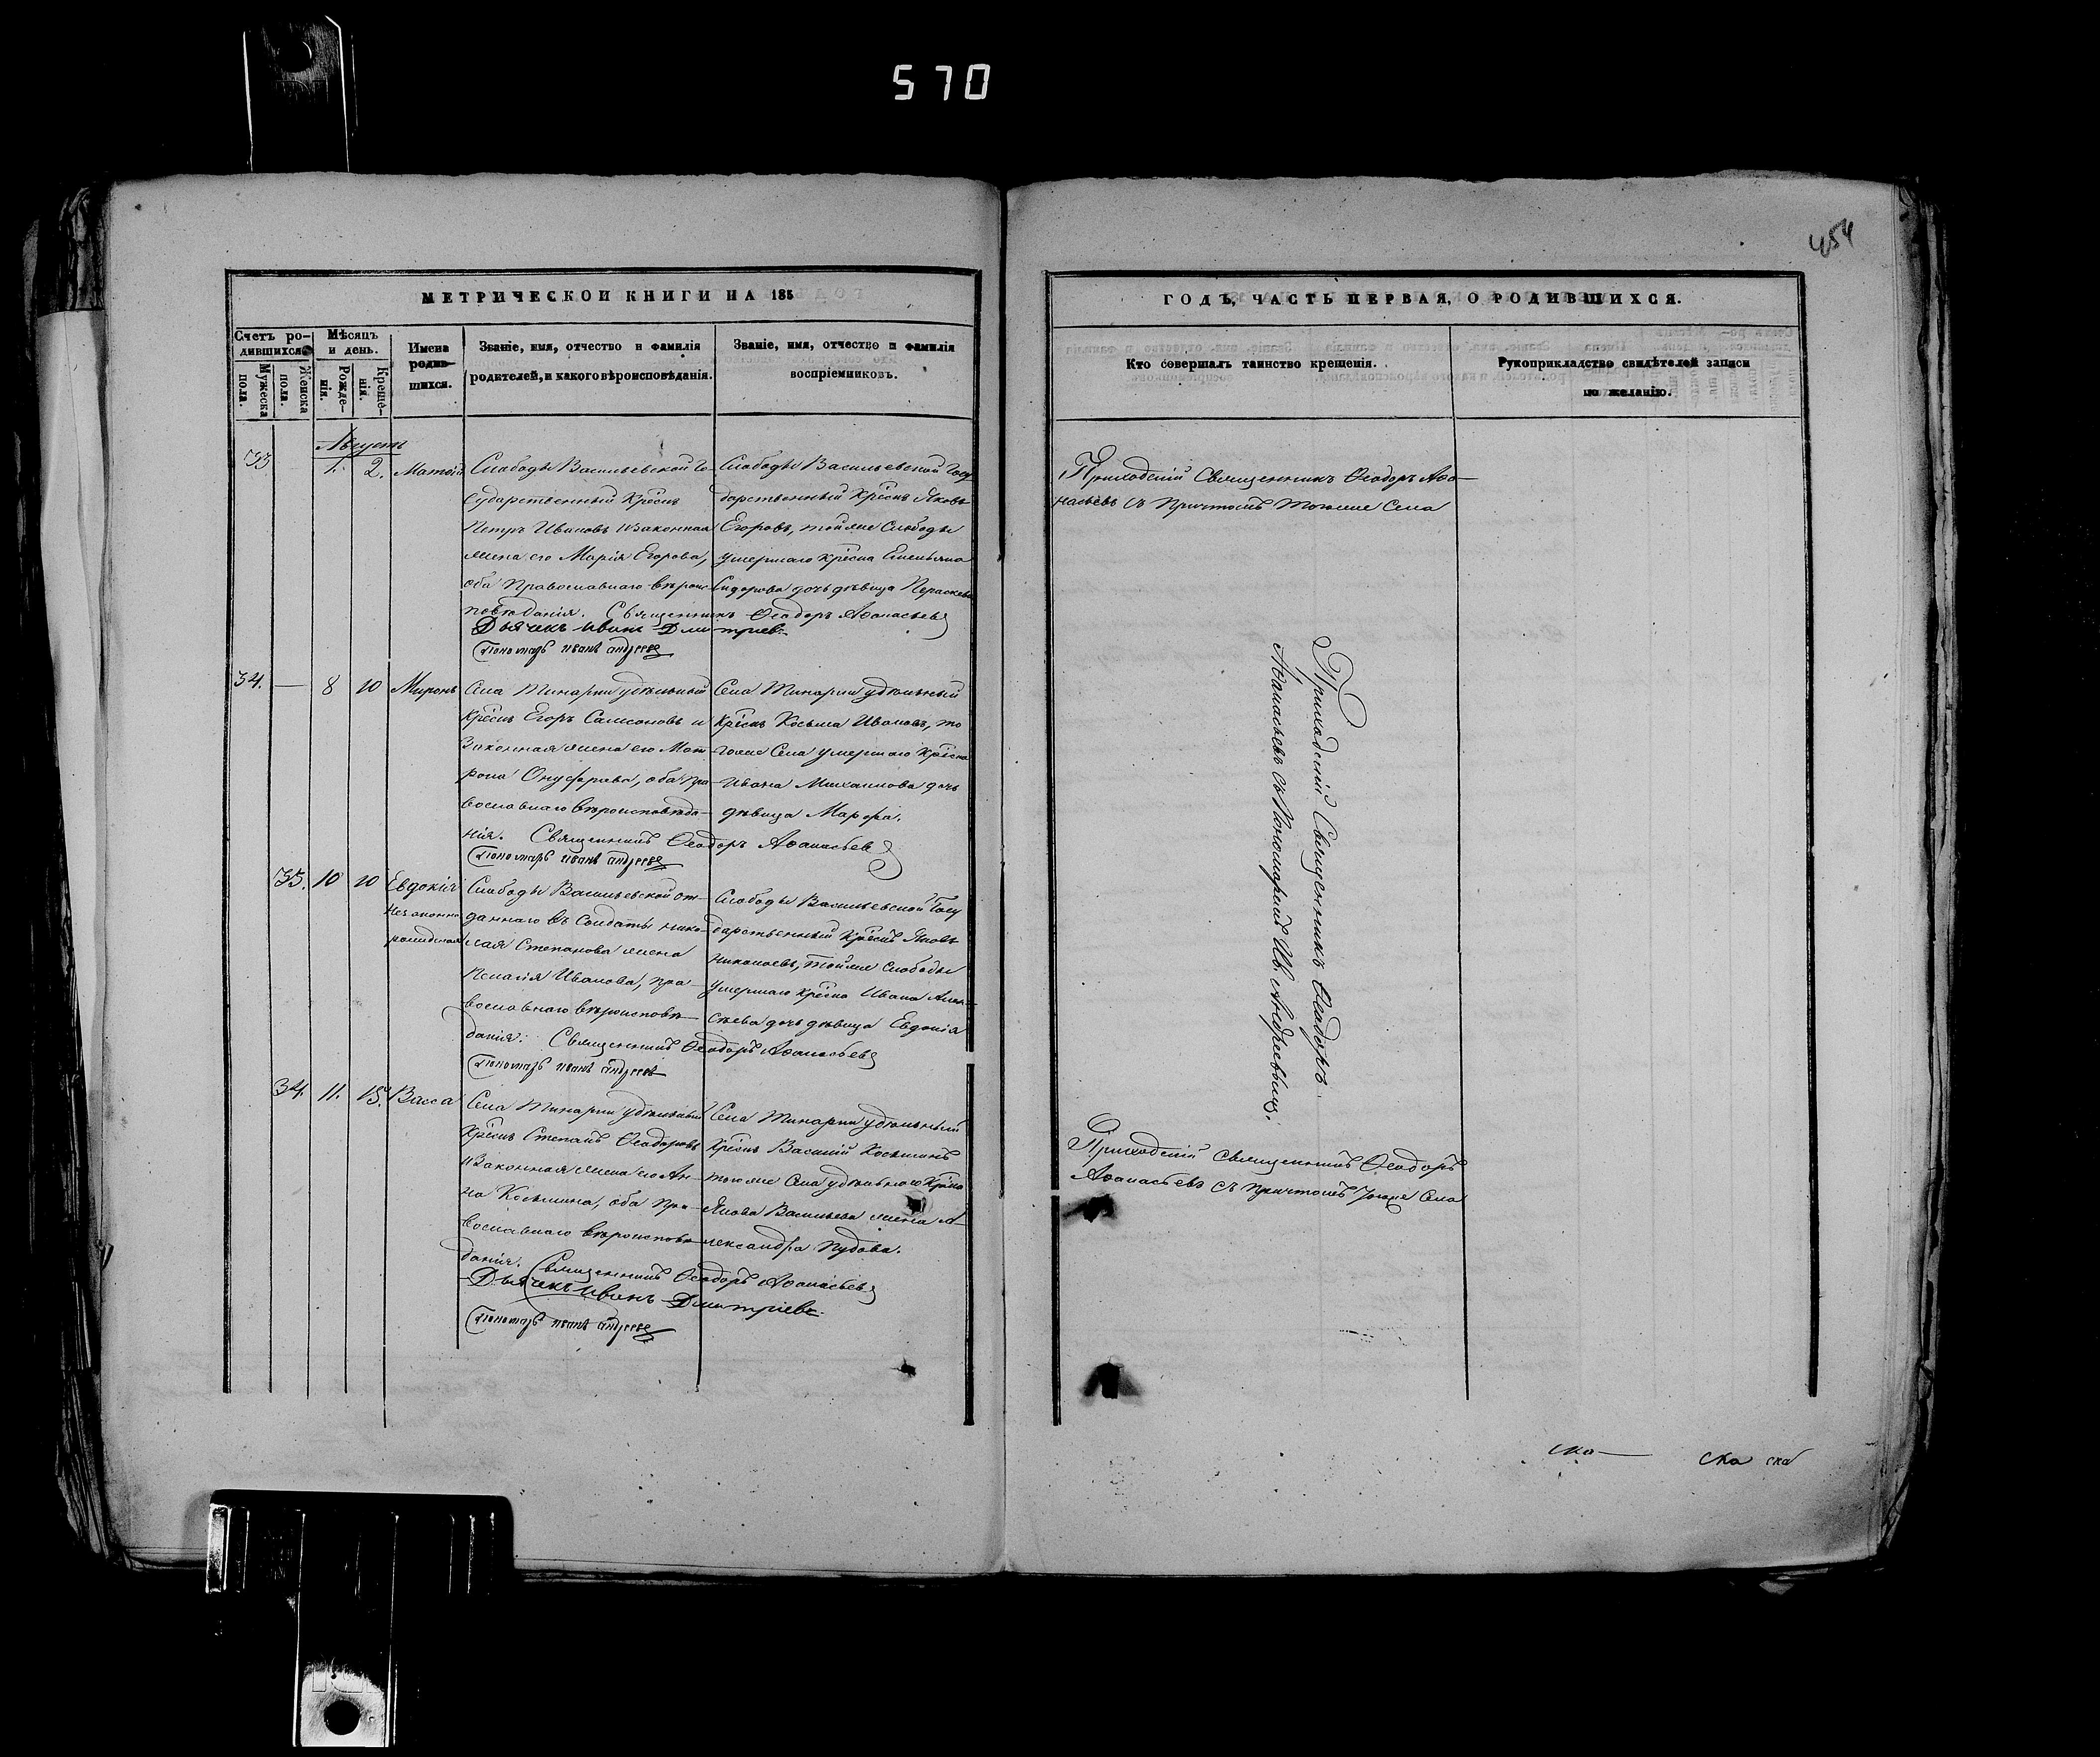 570
454
МЕТРИЧЕСКОЙ КНИГИ НА 185
Счетъ ро-
дившихся.
Мужеска
пола.
Женска
пола.
Мѣсяцъ
и день.
Рожде-
нія.
Креще-
нія.
Имена
родив-
шихся.
Званіе, имя, отчество и фамилія
родителей, и какого вѣроисповѣданія.
Званіе, имя, отчество и фамилія
воспріемниковъ.
Августъ
33 — 1. 2. Матѳій
Слободы Васильевской Го-
сударственный Крѣснъ
Петръ Ивановъ и Законная
жена его Марія Егорова,
оба Православнаго вѣроис-
повѣданія. Священникъ Ѳеодоръ Аѳанасьевъ
Дьячекъ Иванъ Дмитріевъ
Пономарь иванъ андреевъ
Слободы Васильевской Госу
дарственный Крѣснъ Яковъ
Егоровъ, тойже Слободы
умершаго крѣсна Емельяна
Сидорова дочь дѣвица Параскева
34. — 8 10 Миронъ
Села Тинарки удѣльный
Крѣснъ Егоръ Самсоновъ и
Законная жена его Мат-
рона Онуфрава, оба пра-
вославнаго вѣроисповѣда-
нія. Священникъ Ѳеодоръ Аѳанасьевъ
Пономарь иванъ андреевъ
Села Тинарки удѣльный
Крѣснъ Косьма Ивановъ, то
гоже Села умершаго Крѣсна
Ивана Михаилова дочь
дѣвица Марфа.
33. 10 10 Евдокія
незаконно
рожденая
Слободы Васильевской от-
даннаго въ Солдаты Нико-
лая Степанова жена
Пелагія Иванова, пра-
вославнаго вѣроисповѣ-
данія: Священникъ Ѳеодоръ Аѳанасьевъ
Пономарь иванъ андреевъ
Слободы Васильевской Госу
дарственный Крѣснъ Яковъ
Николаевъ, тойже Слободы
умершаго крѣсна Ивана Алек-
сѣева дочь дѣвица Евдокія
34. 11. 15. Васса
Села Тинарки удѣльный
Крѣснъ Степанъ Ѳеодоровъ
и Законная жена его Ан-
на Косьмина, оба пра-
вославнаго вѣроисповѣ-
данія. Священникъ Ѳеодоръ Аѳанасьевъ
Дьячекъ Иванъ Дмитріевъ
Пономарь иванъ андреевъ
Села Тинарки удѣльный
Крѣснъ Василій Косьминъ
тогоже Села удѣльнаго Крѣсна
Якова Васильева жена А-
лександра Пудова.
ГОДЪ, ЧАСТЬ ПЕРВАЯ, О РОДИВШИХСЯ.
Кто совершалъ таинство крещенія.
Рукоприкладство свидѣтелей записи
по желанію.
Приходскій Священникъ Ѳеодоръ Аѳа-
насьевъ съ Причтомъ тогоже Села
Приходскій Священникъ Ѳеодоръ
Аѳанасьевъ съ Пономаремъ Ив. Андреевымъ.
Приходскій Священникъ Ѳеодоръ
Аѳанасьевъ съ причтомъ тогоже Села
ска ска